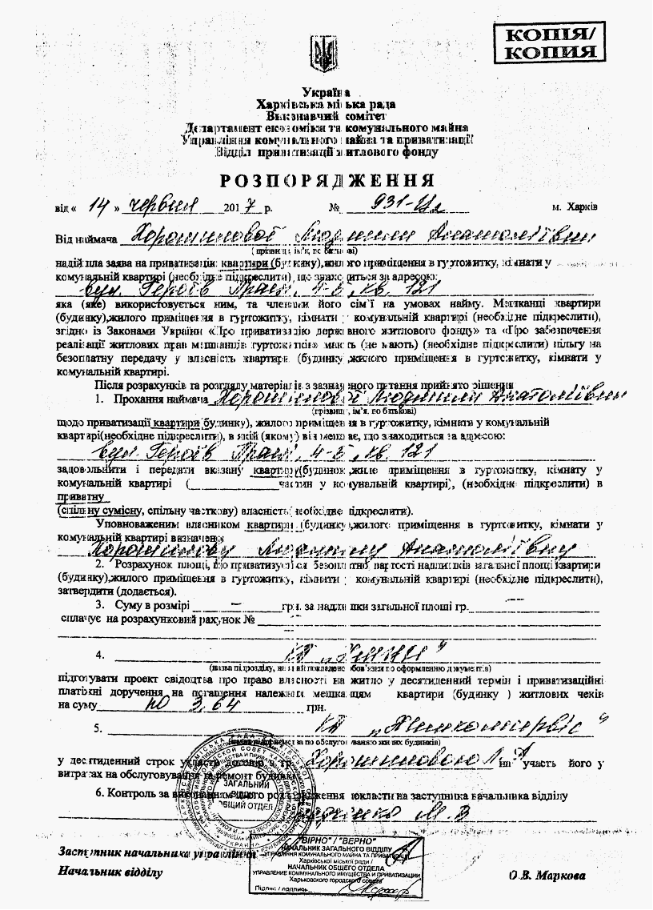 КОПІЯ/
КОПИЯ
Україна
Харківська міська рада
Виконавчий комітет
Департамент економіки та комунального майна
Управління комунального майна та приватизації
Відділ приватизації житлового фонду
РОЗПОРЯДЖЕННЯ
від « 14 » червня 2017 р. № 931- м. Харків
Від наймача Людмили Анатоліївни
(прізвище, ім'я, по батькові)
надійшла заява на приватизацію квартири (будинку), жилого приміщення в гуртожитку, кімнати у
комунальній квартирі (необхідне підкреслити), що знаходиться за адресою:
вул. Героїв Праці, 4-Б, кв. 121
яка (яке) використовується ним, та членами його сім'ї на умовах найму. Мешканці квартири
(будинку),жилого приміщення в гуртожитку, кімнати у комунальній квартирі (необхідне підкреслити),
згідно із Законами України «Про приватизацію державного житлового фонду» та «Про забезпечення
реалізації житлових прав мешканців гуртожитків» мають (не мають) (необхідне підкреслити) пільгу на
безоплатну передачу у власність квартири (будинку),жилого приміщення в гуртожитку, кімнати у
комунальній квартирі.
Після розрахунків та розгляду матеріалів зазначеного питання прийнято рішення
1. Прохання наймача Людмили Анатоліївни
(прізвище, ім'я, по батькові)
щодо приватизації квартири (будинку), жилого приміщення в гуртожитку, кімнати у комунальній
квартирі(необхідне підкреслити), в якій (якому) він мешкає, що знаходиться за адресою:
вул. Героїв Праці, 4-Б, кв. 121
задовольнити і передати вказану квартиру(будинок),жиле приміщення в гуртожитку, кімнату у
комунальній квартирі ( частин у комунальній квартирі), (необхідне підкреслити) в
приватну
(спільну сумісну, спільну часткову) власність(необхідне підкреслити).
Уповноваженим власником квартири (будинку),жилого приміщення в гуртожитку, кімнати у
комунальній квартирі визначено
Людмилу Анатоліївну
2. Розрахунок площі, що приватизується безоплатно, вартості надлишків загальної площі квартири
(будинку),жилого приміщення в гуртожитку, кімнати у комунальній квартирі (необхідне підкреслити),
затвердити (додається).
3. Суму в розмірі грн. за надлишки загальної площі гр.
сплачує на розрахунковий рахунок №
4. КП
(назва підрозділу, на який покладено обов'язки по оформленню документів)
підготувати проект свідоцтва про право власності на житло у десятиденний термін і приватизаційні
платіжні доручення на погашення належних мешканцям квартири (будинку) житлових чеків
на суму по 3,64 грн.
5. КП „Жилкомсервіс"
по обслуговуванню жилих будинків)
у десятиденний строк укласти договір з гр. Л А участь його у
витратах на обслуговування та ремонт будинку
6. Контроль за виконанням цього розпорядження покласти на заступника начальника відділу
М. В
ЗАГАЛЬНИЙ
ВІДДІЛ
ОБЩИЙ ОТДЕЛ
"ВІРНО" / "ВЕРНО"
НАЧАЛЬНИК ЗАГАЛЬНОГО ВІДДІЛУ
УПРАВЛІННЯ КОМУНАЛЬНОГО МАЙНА ТА ПРИВАТИЗАЦІЇ
Харківської міської ради /
НАЧАЛЬНИК ОБЩЕГО ОТДЕЛА
УПРАВЛЕНИЕ КОММУНАЛЬНОГО ИМУЩЕСТВА И ПРИВАТИЗАЦИИ
Харьковского городского совета
Підпис / подпись
Заступник начальника управління
Начальник відділу О.В. Маркова